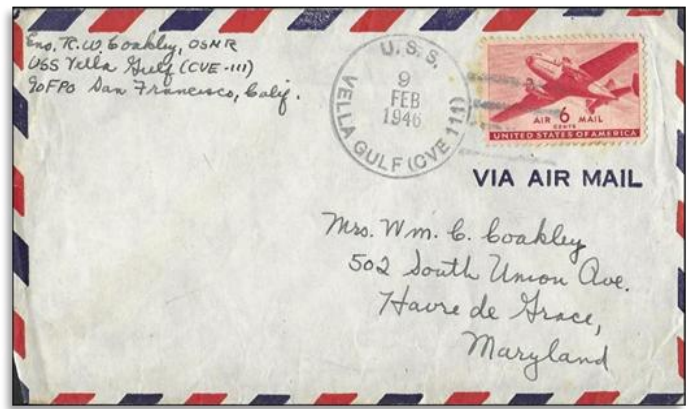 Ens. R.W. Coakley, USNR
USS Vella Gulf (CVE-111)
℅ FPO San Francisco, Calif.
U.S.S.
9
FEB
1946
VELLA GULF (CVE 111)
AIR 6 MAIL
CENTS
UNITED STATES OF AMERICA
VIA AIR MAIL
Mrs. Wm. C. Coakley
502 South Union Ave.
Havre de Grace,
Maryland